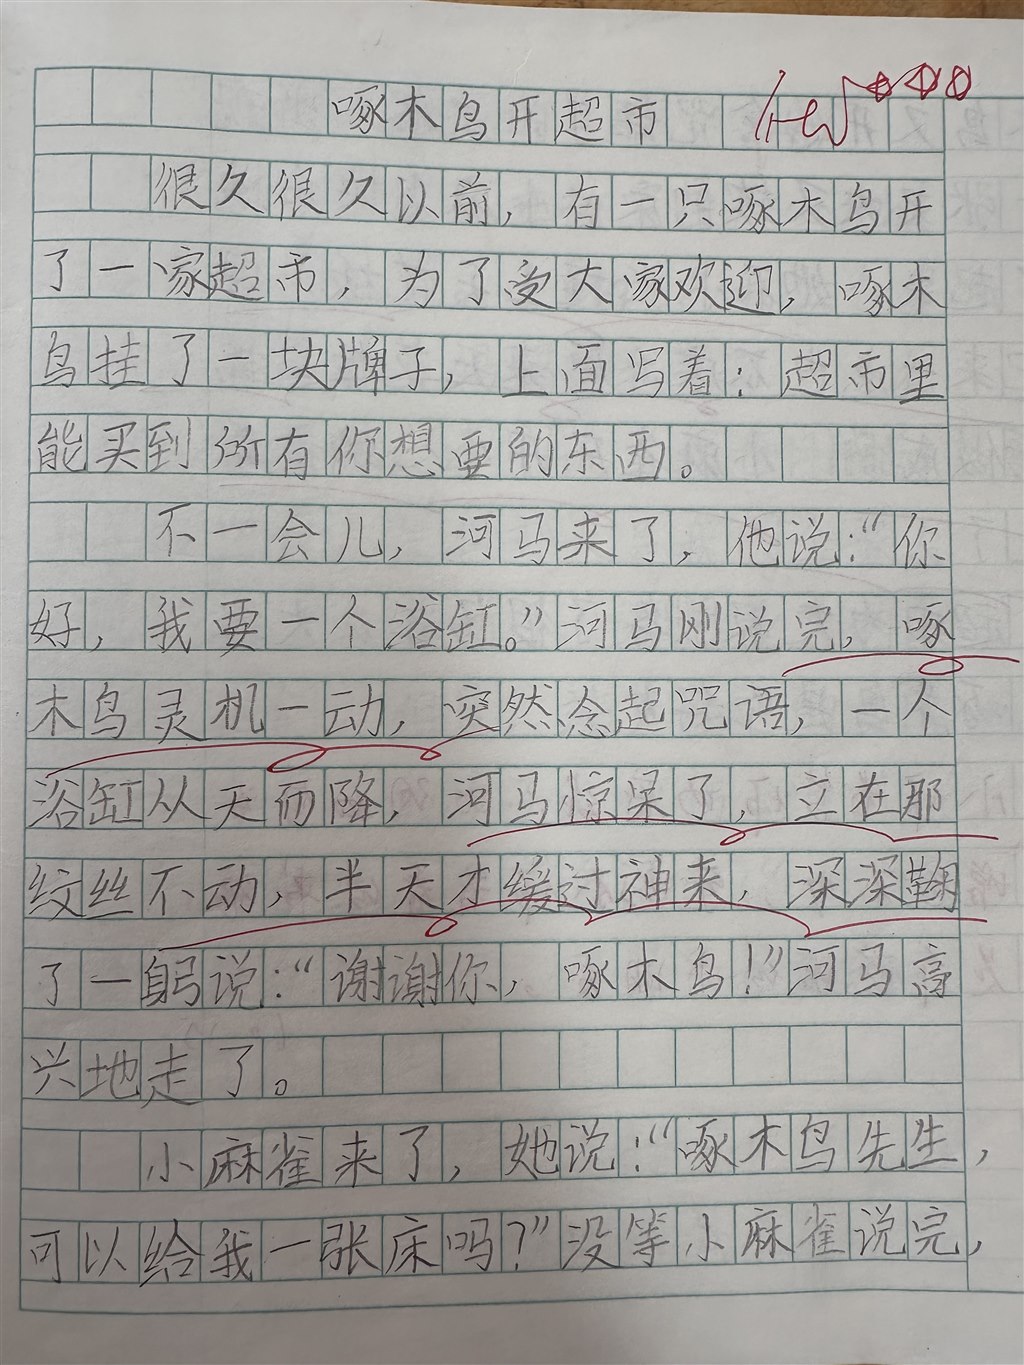 啄木鸟开超市
很久很久以前，有一只啄木鸟开
了一家超市，为了受大家欢迎，啄木
鸟挂了一块牌子，上面写着：超市里
能买到所有你想要的东西。
不一会儿，河马来了，他说：“你
好，我要一个浴缸。”河马刚说完，啄
木鸟灵机一动，突然念起咒语，一个
浴缸从天而降，河马惊呆了，立在那
纹丝不动，半天才缓过神来，深深鞠
了一躬说：“谢谢你，啄木鸟！”河马高
兴地走了。
小麻雀来了，她说：“啄木鸟先生，
可以给我一张床吗？”没等小麻雀说完，